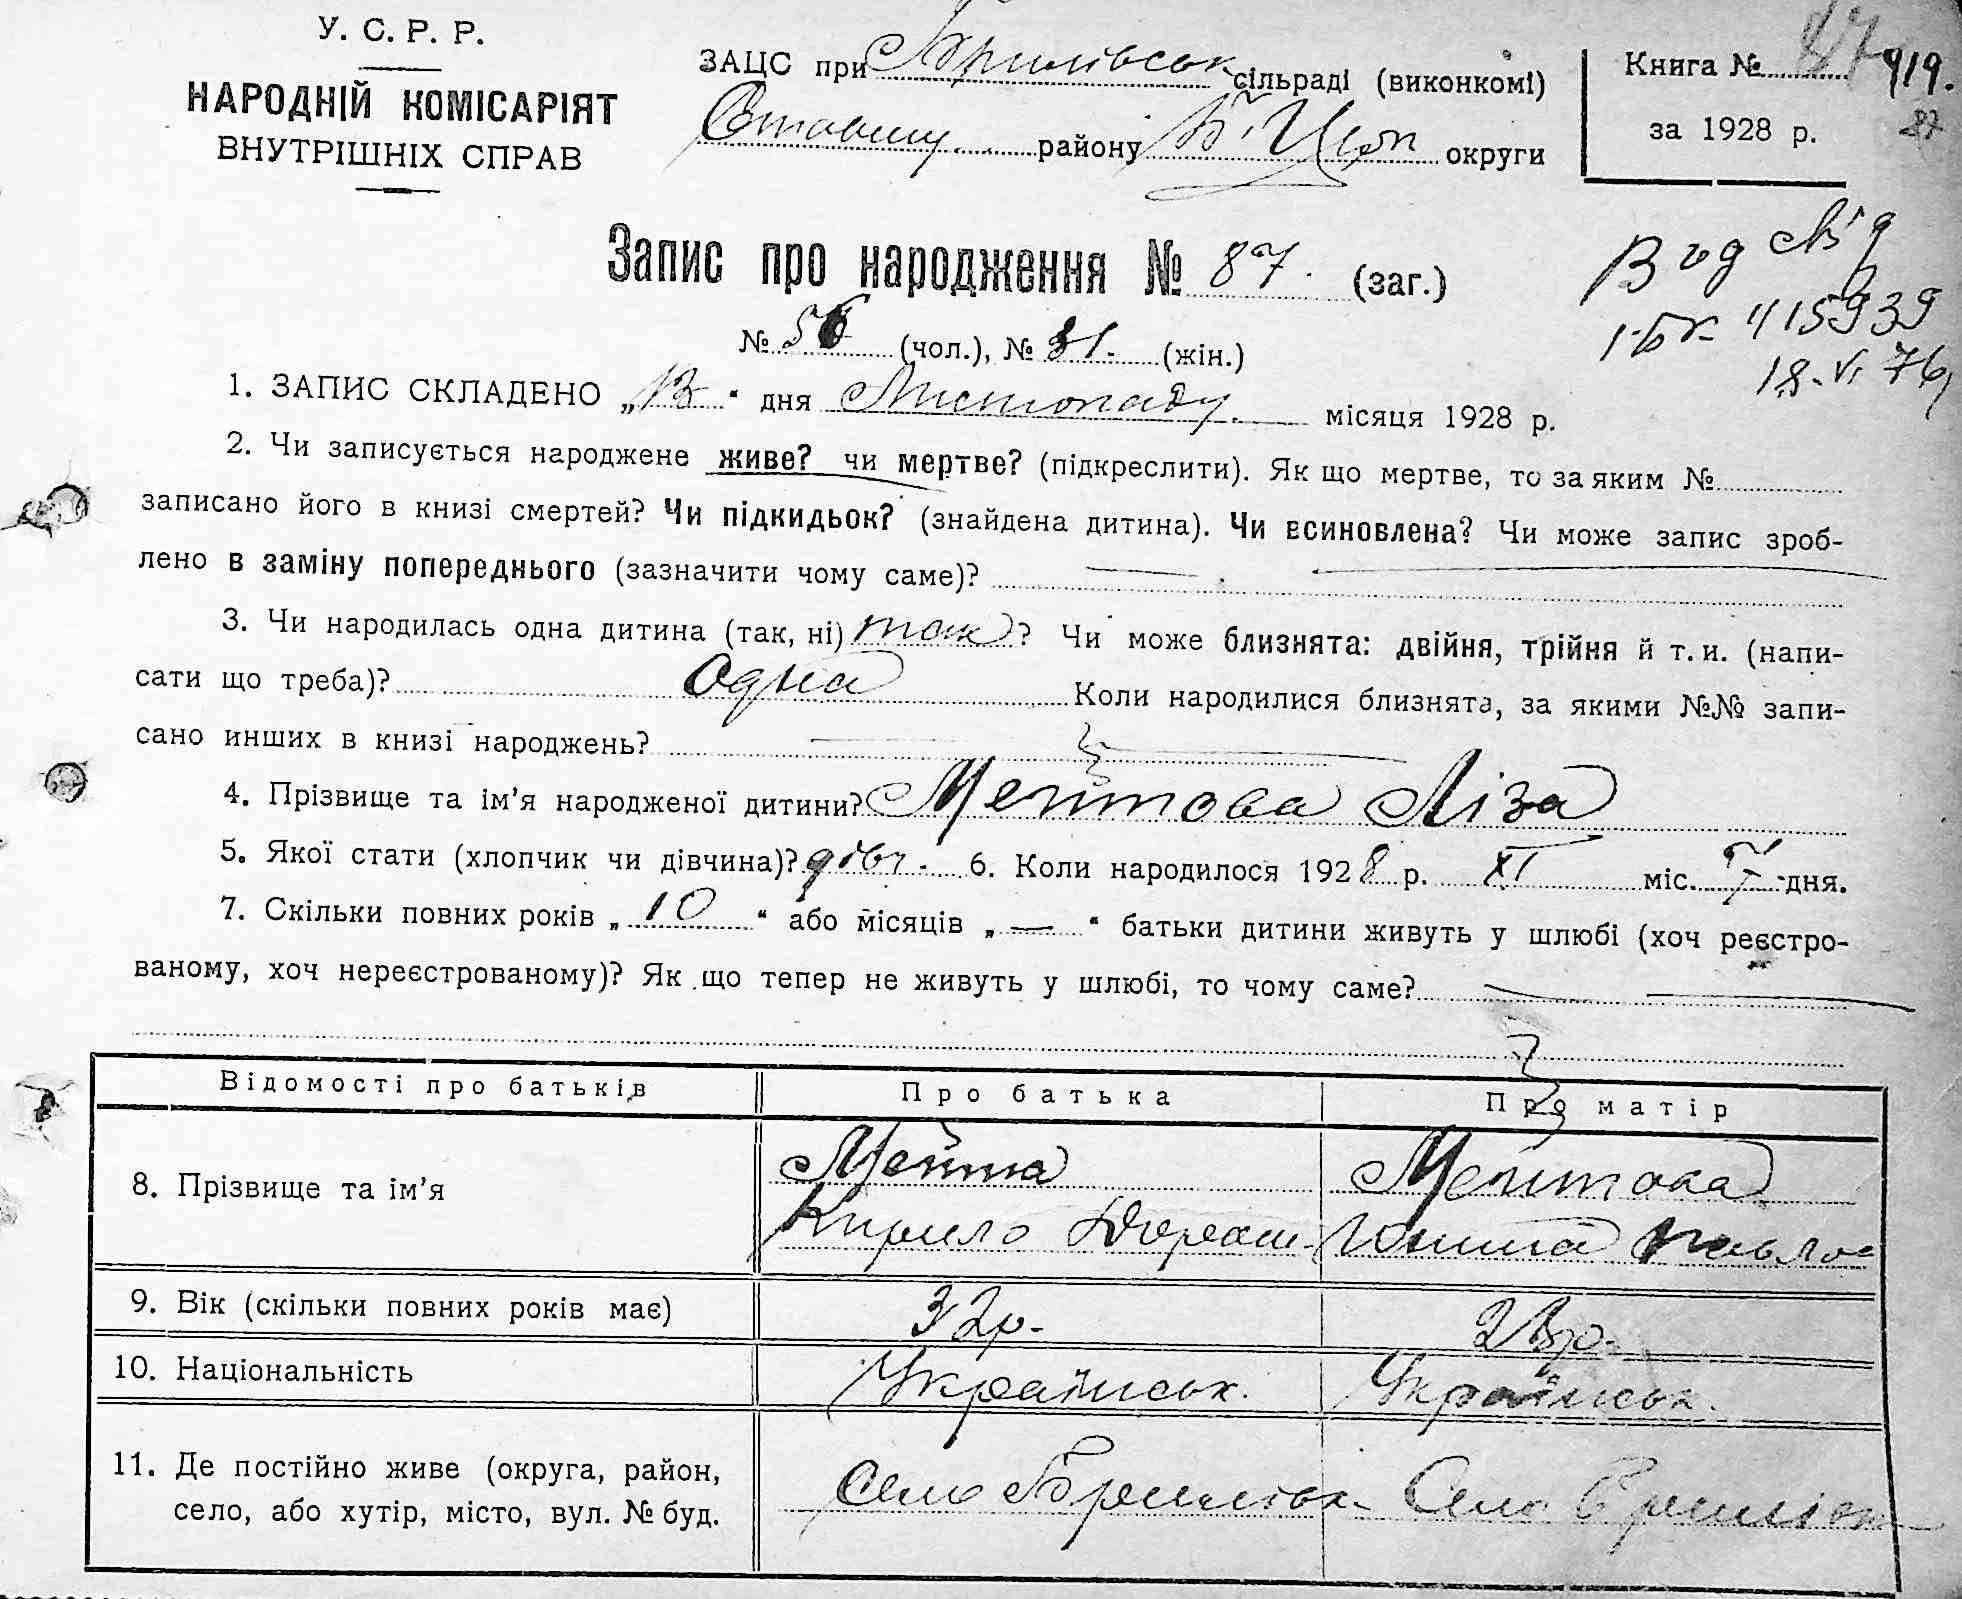 У. С. Р. Р.
НАРОДНІЙ КОМІСАРІЯТ
ВНУТРІШНІХ СПРАВ
ЗАЦС при сільраді (виконкомі)
району Б. Церк округи
Книга № 919.
за 1928 р.
87
Запис про народження № 87. (заг.)
№ 56 (чол.), № 31. (жін.)
415939
18.VI 76
1. ЗАПИС СКЛАДЕНО „13“ дня Листопаду. місяця 1928 р.
2. Чи записується народжене живе? чи мертве? (підкреслити). Як що мертве, то за яким №
записано його в книзі смертей? Чи підкидьок? (знайдена дитина). Чи всиновлена? Чи може запис зроб-
лено в заміну попереднього (зазначити чому саме)? —
3. Чи народилась одна дитина (так, ні) так? Чи може близнята: двійня, трійня й т. и. (напи-
сати що треба)? Одна Коли народилися близнята, за якими №№ запи-
сано инших в книзі народжень? —
4. Прізвище та ім’я народженої дитини? Мейтова Ліза
5. Якої стати (хлопчик чи дівчина)? дівч. 6. Коли народилося 1928 р. XI міс. 7 дня.
7. Скільки повних років „10“ або місяців „—“ батьки дитини живуть у шлюбі (хоч реєстро-
ваному, хоч нереєстрованому)? Як що тепер не живуть у шлюбі, то чому саме? —
Відомості про батьків Про батька Про матір
8. Прізвище та ім’я Мейта Мейтова
Кирило Павло
9. Вік (скільки повних років має) 32р.
10. Національність Українськ. Українськ.
11. Де постійно живе (округа, район,
село, або хутір, місто, вул. № буд.
Село Село